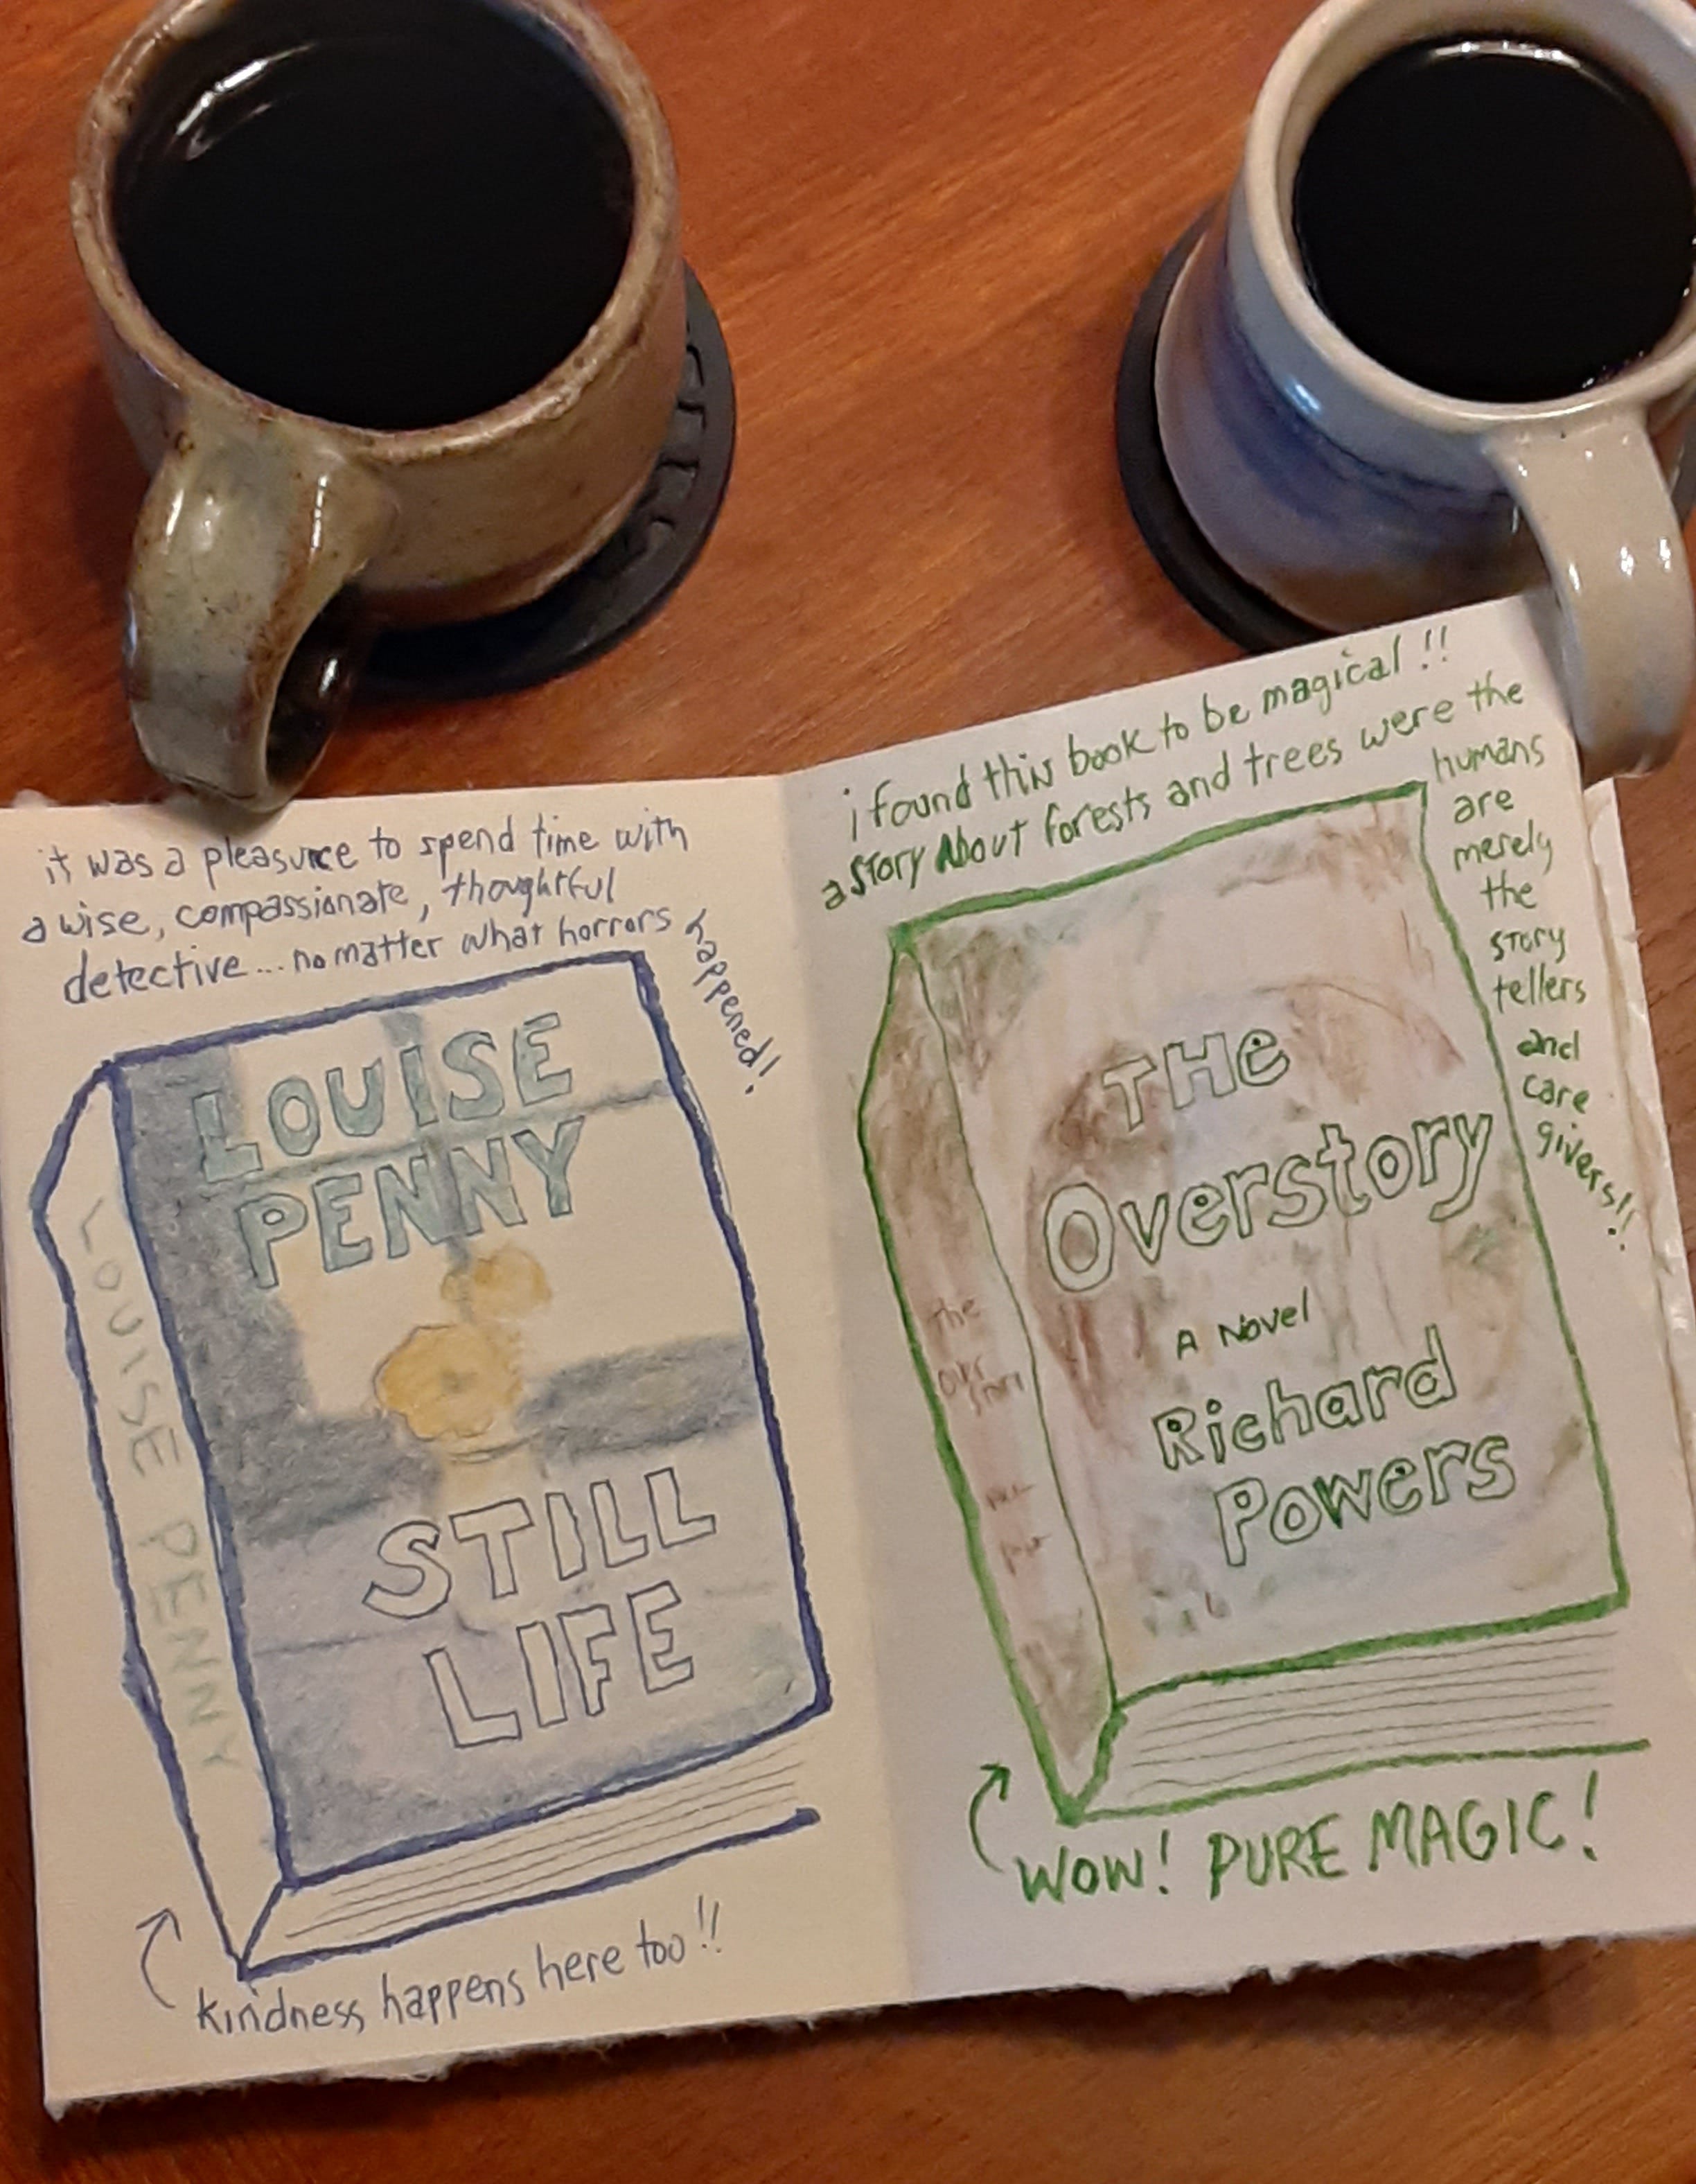 it was a pleasure to spend time with
a wise, compassionate, thoughtful
detective... no matter what horrors
happened!
LOUISE
PENNY
STILL
LIFE
LOUISE PENNY
kindness happens here too!!
i found this book to be magical!!
a story About forests and trees were the
humans
are
merely
the
story
tellers
and
care
givers!!
THe
Overstory
A Novel
Richard
Powers
The
WOW! PURE MAGIC!